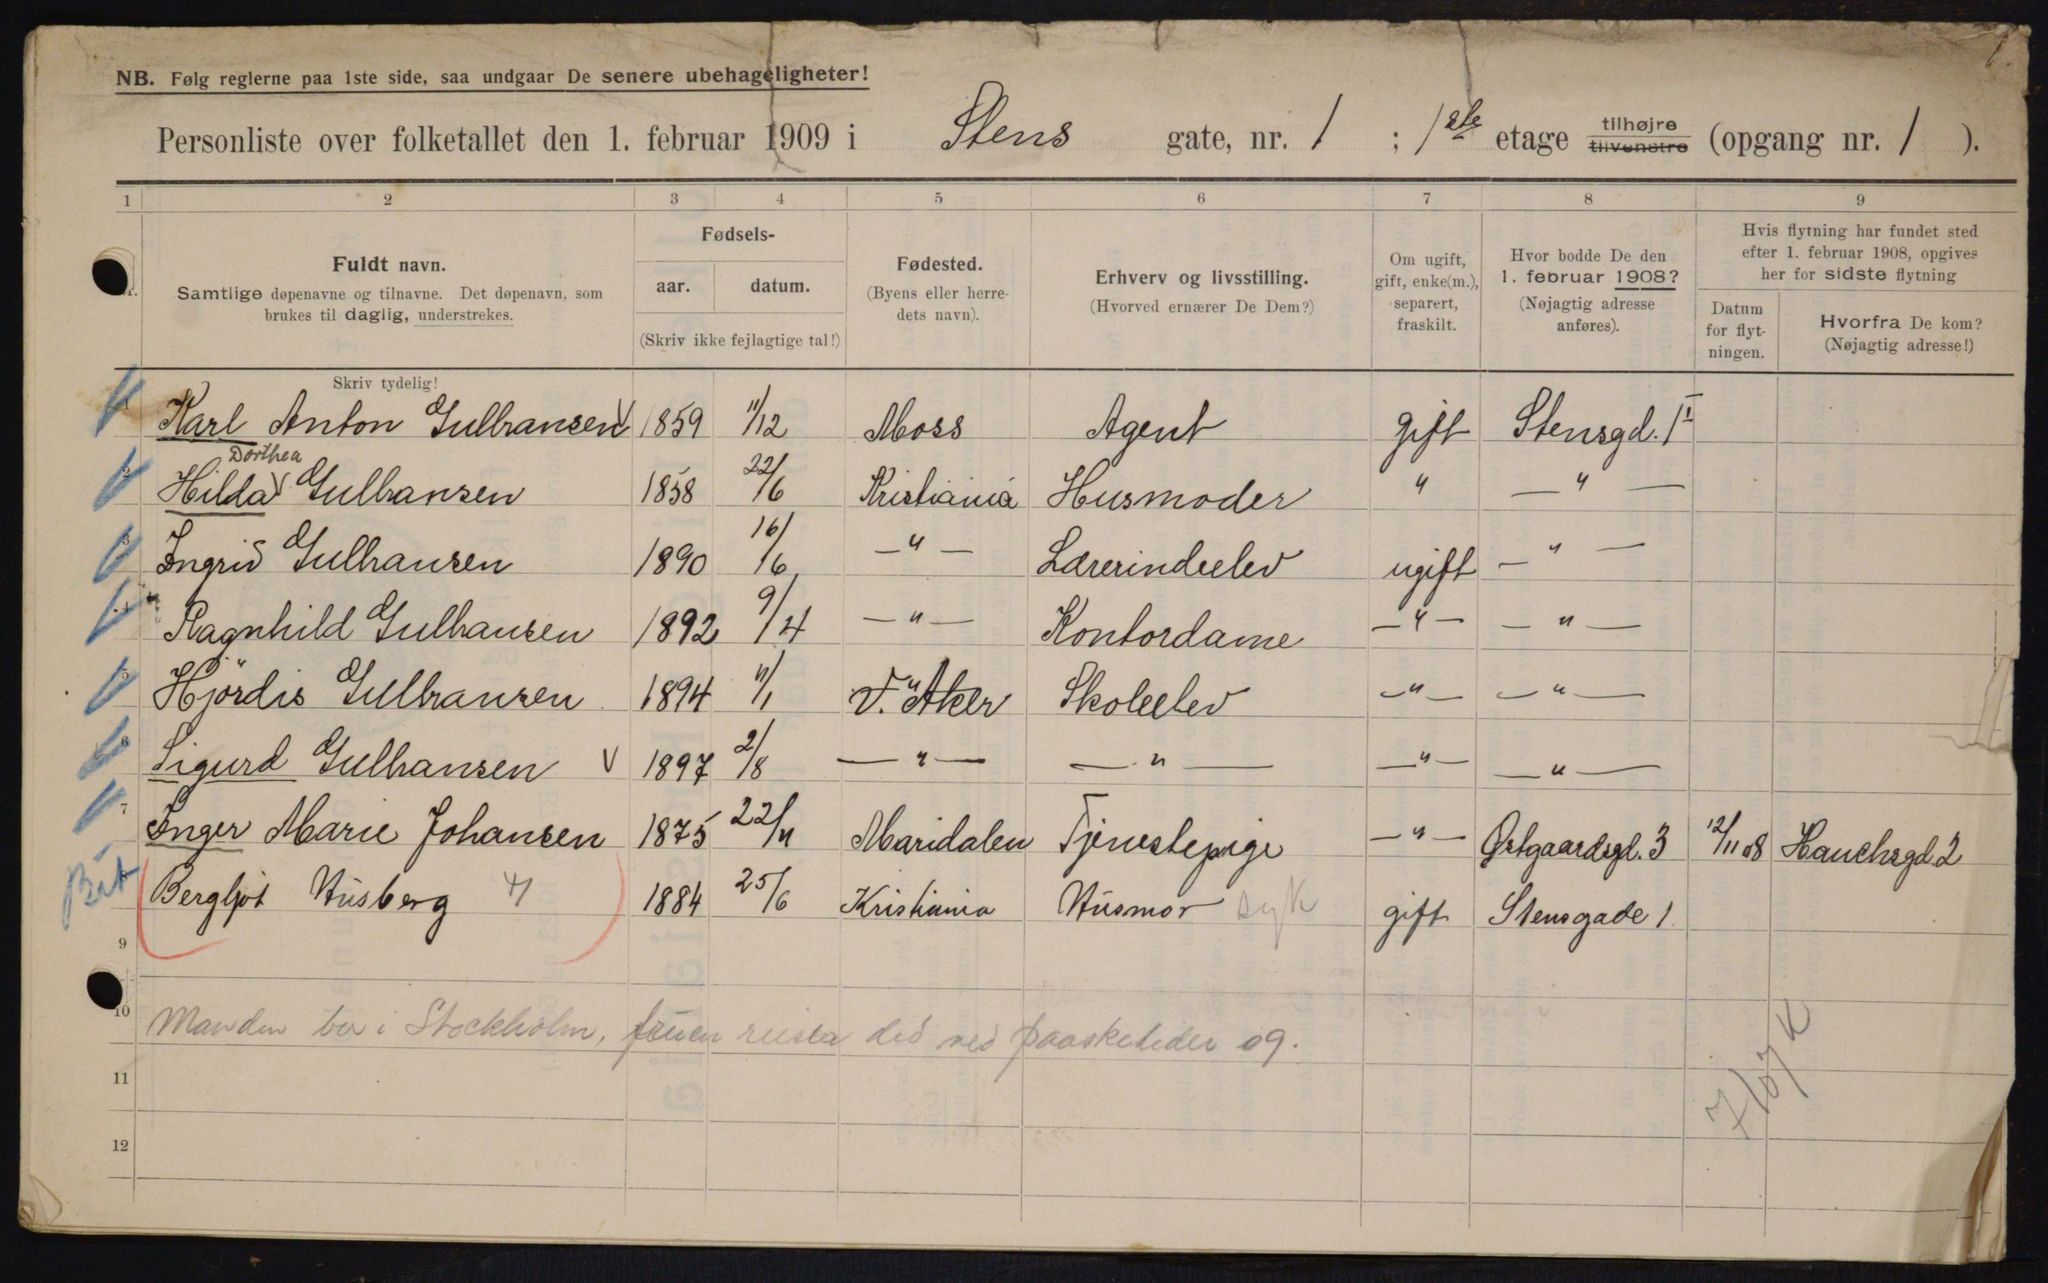 NB. Følg reglerne paa 1ste side, saa undgaar De senere ubehageligheter!
Personliste over folketallet den 1. februar 1909 i Stens gate, nr. 1 ; 1ste etage tilhøjre tilvenstre (opgang nr. 1 ).
1 2 3 4 5 6 7 8 9
Fuldt navn.
Samtlige døpenavne og tilnavne. Det døpenavn, som
brukes til daglig, understrekes.
Skriv tydelig!
Fødsels-
aar. datum.
(Skriv ikke fejlagtige tal!)
Fødested.
(Byens eller herre-
dets navn).
Erhverv og livsstilling.
(Hvorved ernærer De Dem?)
Om ugift,
gift, enke(m.),
separert,
fraskilt.
Hvor bodde De den
1. februar 1908?
(Nøjagtig adresse
anføres).
Hvis flytning har fundet sted
efter 1. februar 1908, opgives
her for sidste flytning
Datum
for flyt-
ningen.
Hvorfra De kom?
(Nøjagtig adresse!)
1 Karl Anton Gulbransen 1859 11/12 Moss Agent gift Stensgd. 1 I
Dorthea
2 Hilda Gulbransen 1858 22/6 Kristiania Husmoder " — " —
3 Ingrid Gulbransen 1890 16/6 — " — Lærerindeelev ugift — " —
4 Ragnhild Gulbransen 1892 9/4 — " — Kontordame — " — — " —
5 Hjördis Gulbransen 1894 11/1 V. Aker Skoleelev — " — — " —
6 Sigurd Gulbransen V 1897 2/8 — " — — " — — " — — " —
7 Inger Marie Johansen 1875 22/11 Maridalen Tjenestepige — " — Østgaardsgd. 3 12/11 08 Hauchsgd. 2
8 Bergljot Husberg 1884 25/6 Kristiania Husmor syk gift Stensgade 1
9
10 Manden bor i Stockholm, fruen reiste did ved paasketider 09.
11
12